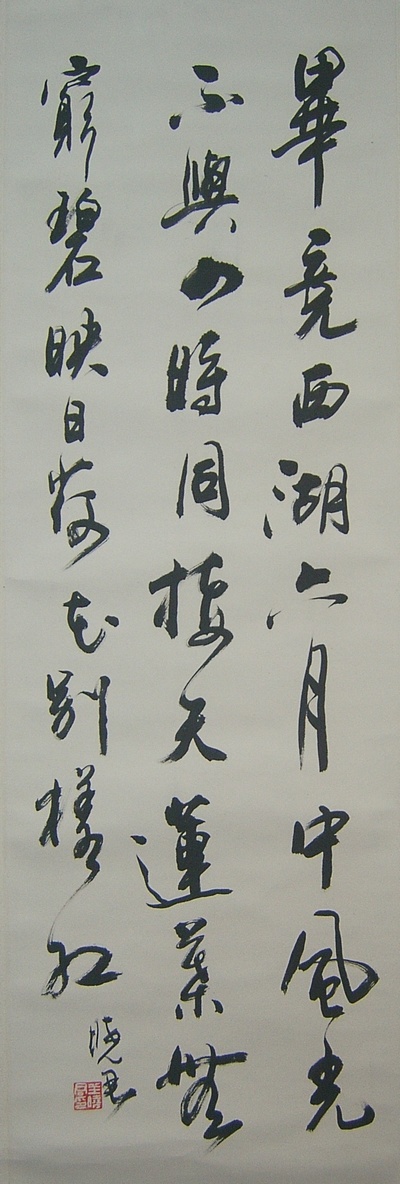 畢竟西湖六月中風光
不與四時同接天蓮葉無
窮碧映日荷花別樣紅
曉君